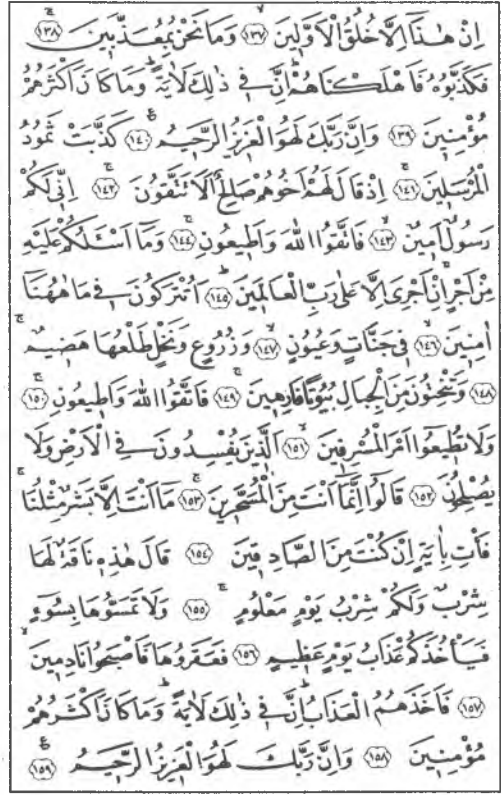 اِنْ هٰذَٓا اِلَّا خُلُقُ الْاَوَّلٖينَ ﴿١٣٧﴾ وَمَا نَحْنُ بِمُعَذَّبٖينَ ﴿١٣٨﴾
فَكَذَّبُوهُ فَاَهْلَكْنَاهُمْ اِنَّ فٖى ذٰلِكَ لَاٰيَةً وَمَا كَانَ اَكْثَرُهُمْ
مُؤْمِنٖينَ ﴿١٣٩﴾ وَاِنَّ رَبَّكَ لَهُوَ الْعَزٖيزُ الرَّحٖيمُ ﴿١٤٠﴾ كَذَّبَتْ ثَمُودُ
الْمُرْسَلٖينَ ﴿١٤١﴾ اِذْ قَالَ لَهُمْ اَخُوهُمْ صَالِحٌ اَلَا تَتَّقُونَ ﴿١٤٢﴾ اِنّٖى لَكُمْ
رَسُولٌ اَمٖينٌ ﴿١٤٣﴾ فَاتَّقُوا اللّٰهَ وَاَطٖيعُونِ ﴿١٤٤﴾ وَمَٓا اَسْـَٔلُكُمْ عَلَيْهِ
مِنْ اَجْرٍ اِنْ اَجْرِىَ اِلَّا عَلٰى رَبِّ الْعَالَمٖينَ ﴿١٤٥﴾ اَتُتْرَكُونَ فٖى مَا هٰهُنَٓا
اٰمِنٖينَ ﴿١٤٦﴾ فٖى جَنَّاتٍ وَعُيُونٍ ﴿١٤٧﴾ وَزُرُوعٍ وَنَخْلٍ طَلْعُهَا هَضٖيمٌ
﴿١٤٨﴾ وَتَنْحِتُونَ مِنَ الْجِبَالِ بُيُوتًا فَارِهٖينَ ﴿١٤٩﴾ فَاتَّقُوا اللّٰهَ وَاَطٖيعُونِ ﴿١٥٠﴾
وَلَا تُطٖيعُٓوا اَمْرَ الْمُسْرِفٖينَ ﴿١٥١﴾ اَلَّذٖينَ يُفْسِدُونَ فِى الْاَرْضِ وَلَا
يُصْلِحُونَ ﴿١٥٢﴾ قَالُٓوا اِنَّمَٓا اَنْتَ مِنَ الْمُسَحَّرٖينَ ﴿١٥٣﴾ مَٓا اَنْتَ اِلَّا بَشَرٌ مِثْلُنَا
فَاْتِ بِاٰيَةٍ اِنْ كُنْتَ مِنَ الصَّادِقٖينَ ﴿١٥٤﴾ قَالَ هٰذِهٖ نَاقَةٌ لَهَا
شِرْبٌ وَلَكُمْ شِرْبُ يَوْمٍ مَعْلُومٍ ﴿١٥٥﴾ وَلَا تَمَسُّوهَا بِسُٓوءٍ
فَيَاْخُذَكُمْ عَذَابُ يَوْمٍ عَظٖيمٍ ﴿١٥٦﴾ فَعَقَرُوهَا فَاَصْبَحُوا نَادِمٖينَ
﴿١٥٧﴾ فَاَخَذَهُمُ الْعَذَابُ اِنَّ فٖى ذٰلِكَ لَاٰيَةً وَمَا كَانَ اَكْثَرُهُمْ
مُؤْمِنٖينَ ﴿١٥٨﴾ وَاِنَّ رَبَّكَ لَهُوَ الْعَزٖيزُ الرَّحٖيمُ ﴿١٥٩﴾